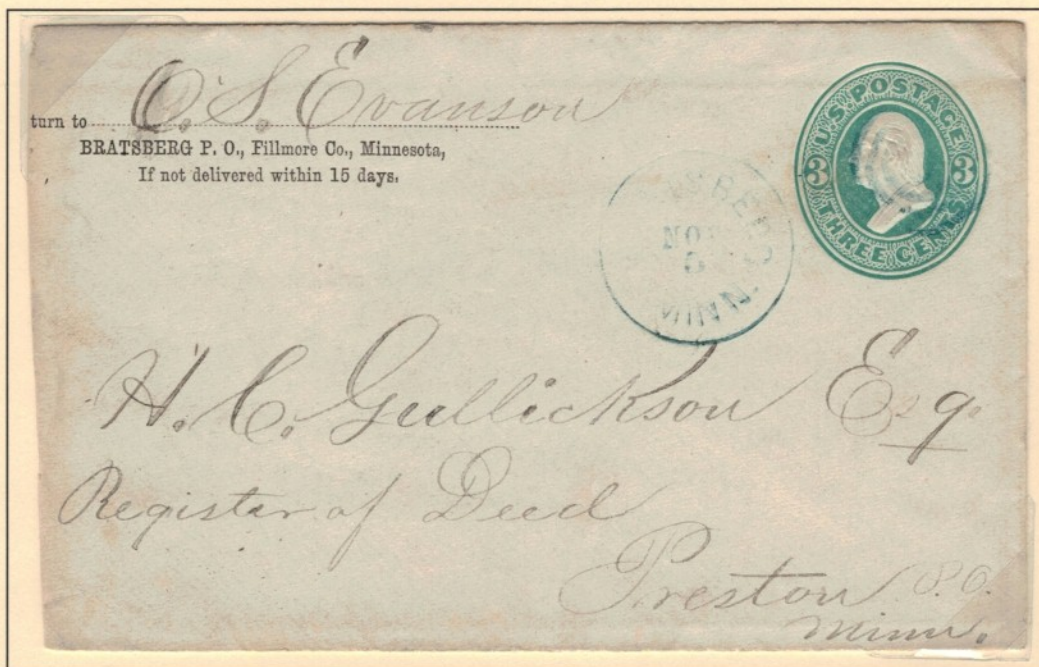 O. S. Evanson
turn to
BRATSBERG P. O., Fillmore Co., Minnesota,
If not delivered within 15 days.
U.S. POSTAGE
3 3
THREE CENTS
NOV
MINN
H. C. Gullickson Esq.
Register of Deed
Preston P.O.
Minn.